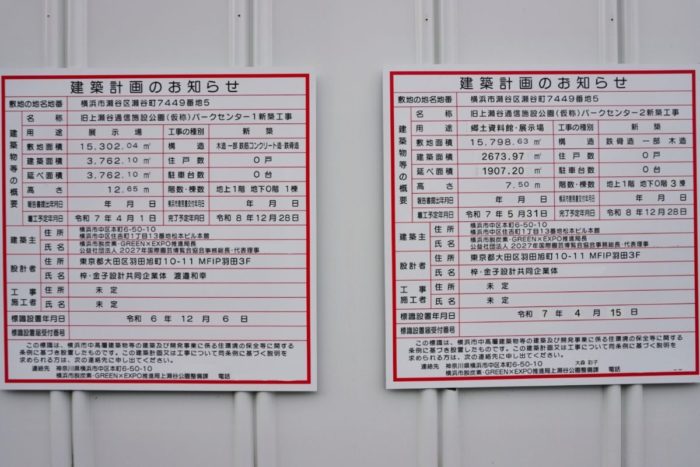 建築計画のお知らせ
敷地の地名地番 横浜市瀬谷区瀬谷町7449番地5
建築物等の概要
名称 旧上瀬谷通信施設公園(仮称)パークセンター1新築工事
用途 展示場 工事の種別 新築
敷地面積 15,302.04㎡ 構造 木造 一部 鉄筋コンクリート造・鉄骨造
建築面積 3,762.10㎡ 住戸数 0戸
延べ面積 3,762.10㎡ 駐車台数 0台
高さ 12.65m 階数・棟数 地上1階 地下0階 1棟
報告書提出年月日 年 月 日 年 月 日
着工予定年月日 令和7年4月1日 完了予定年月日 令和8年12月28日
建築主 住所 横浜市中区本町6-50-10
横浜市中区住吉町1丁目13番地松本ビル本館
氏名 横浜市脱炭素・GREEN×EXPO推進局長
公益社団法人2027年国際園芸博覧会協会事務総長・代表理事
設計者 住所 東京都大田区羽田旭町10-11 MFIP羽田3F
氏名 梓・金子設計共同企業体 渡邉和幸
工事施工者 住所 未定
氏名 未定
標識設置年月日 令和6年12月6日
標識設置届受付番号
この標識は、横浜市中高層建築物等の建築及び開発事業に係る住環境の保全等に関する
条例に基づき設置したものです。この建築計画又は工事について同条例に基づく説明を
求められる方は、次の連絡先に申し出てください。
連絡先 神奈川県横浜市中区本町6-50-10
横浜市脱炭素・GREEN×EXPO推進局上瀬谷公園整備課 電話
建築計画のお知らせ
敷地の地名地番 横浜市瀬谷区瀬谷町7449番地5
建築物等の概要
名称 旧上瀬谷通信施設公園(仮称)パークセンター2新築工事
用途 郷土資料館・展示場 工事の種別 新築
敷地面積 15,798.63㎡ 構造 鉄骨造 一部 木造
建築面積 2673.97㎡ 住戸数 0戸
延べ面積 1907.20㎡ 駐車台数 0台
高さ 7.50m 階数・棟数 地上1階 地下0階 3棟
報告書提出年月日 年 月 日 年 月 日
着工予定年月日 令和7年5月31日 完了予定年月日 令和8年12月28日
建築主 住所 横浜市中区本町6-50-10
横浜市中区住吉町1丁目13番地松本ビル本館
氏名 横浜市脱炭素・GREEN×EXPO推進局長
公益社団法人2027年国際園芸博覧会協会事務総長・代表理事
設計者 住所 東京都大田区羽田旭町10-11 MFIP羽田3F
氏名 梓・金子設計共同企業体
工事施工者 住所 未定
氏名 未定
標識設置年月日 令和7年4月15日
標識設置届受付番号
この標識は、横浜市中高層建築物等の建築及び開発事業に係る住環境の保全等に関する
条例に基づき設置したものです。この建築計画又は工事について同条例に基づく説明を
求められる方は、次の連絡先に申し出てください。
連絡先 神奈川県横浜市中区本町6-50-10
横浜市脱炭素・GREEN×EXPO推進局上瀬谷公園整備課 電話